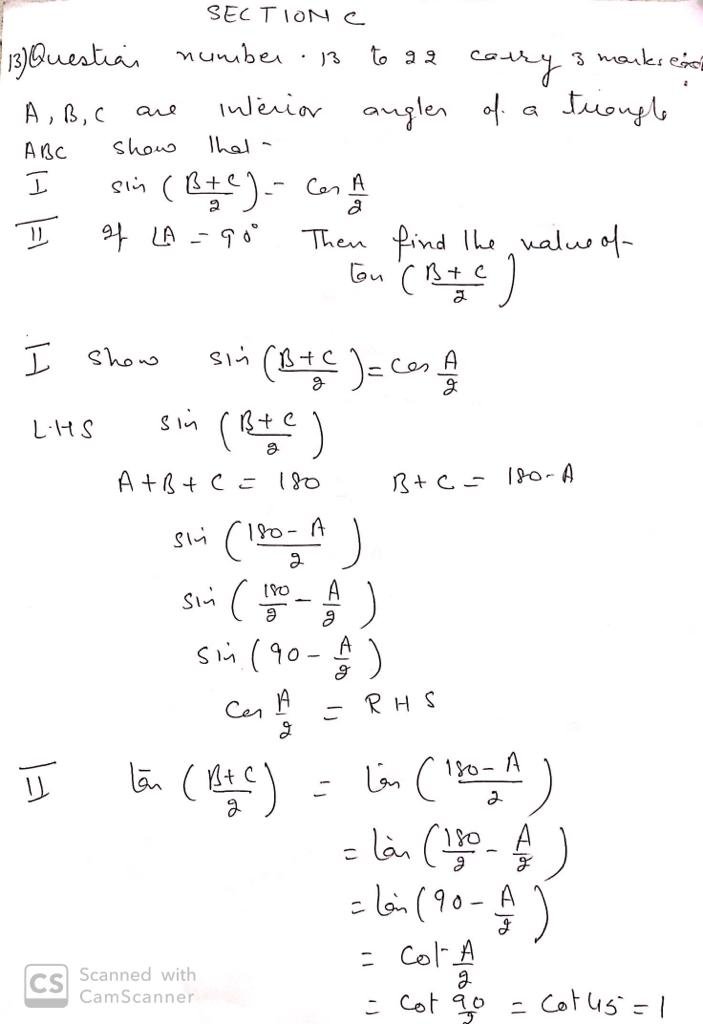 SECTION C
13) Question number . 13 to 22 carry 3 marks each.
A, B, C are interior angles of a triangle
ABC show that -
I sin ( (B+C)/2 ) = cos A/2
II If ∠A = 90° Then find the value of
tan ( (B+C)/2 )
I Show sin ( (B+C)/2 ) = cos A/2
L.H.S sin ( (B+C)/2 )
A+B+C = 180 B+C = 180-A
sin ( (180-A)/2 )
sin ( 180/2 - A/2 )
sin ( 90 - A/2 )
cos A/2 = RHS
II tan ( (B+C)/2 ) = tan ( (180-A)/2 )
= tan ( 180/2 - A/2 )
= tan ( 90 - A/2 )
= cot A/2
= cot 90/2 = cot 45 = 1
CS Scanned with
CamScanner